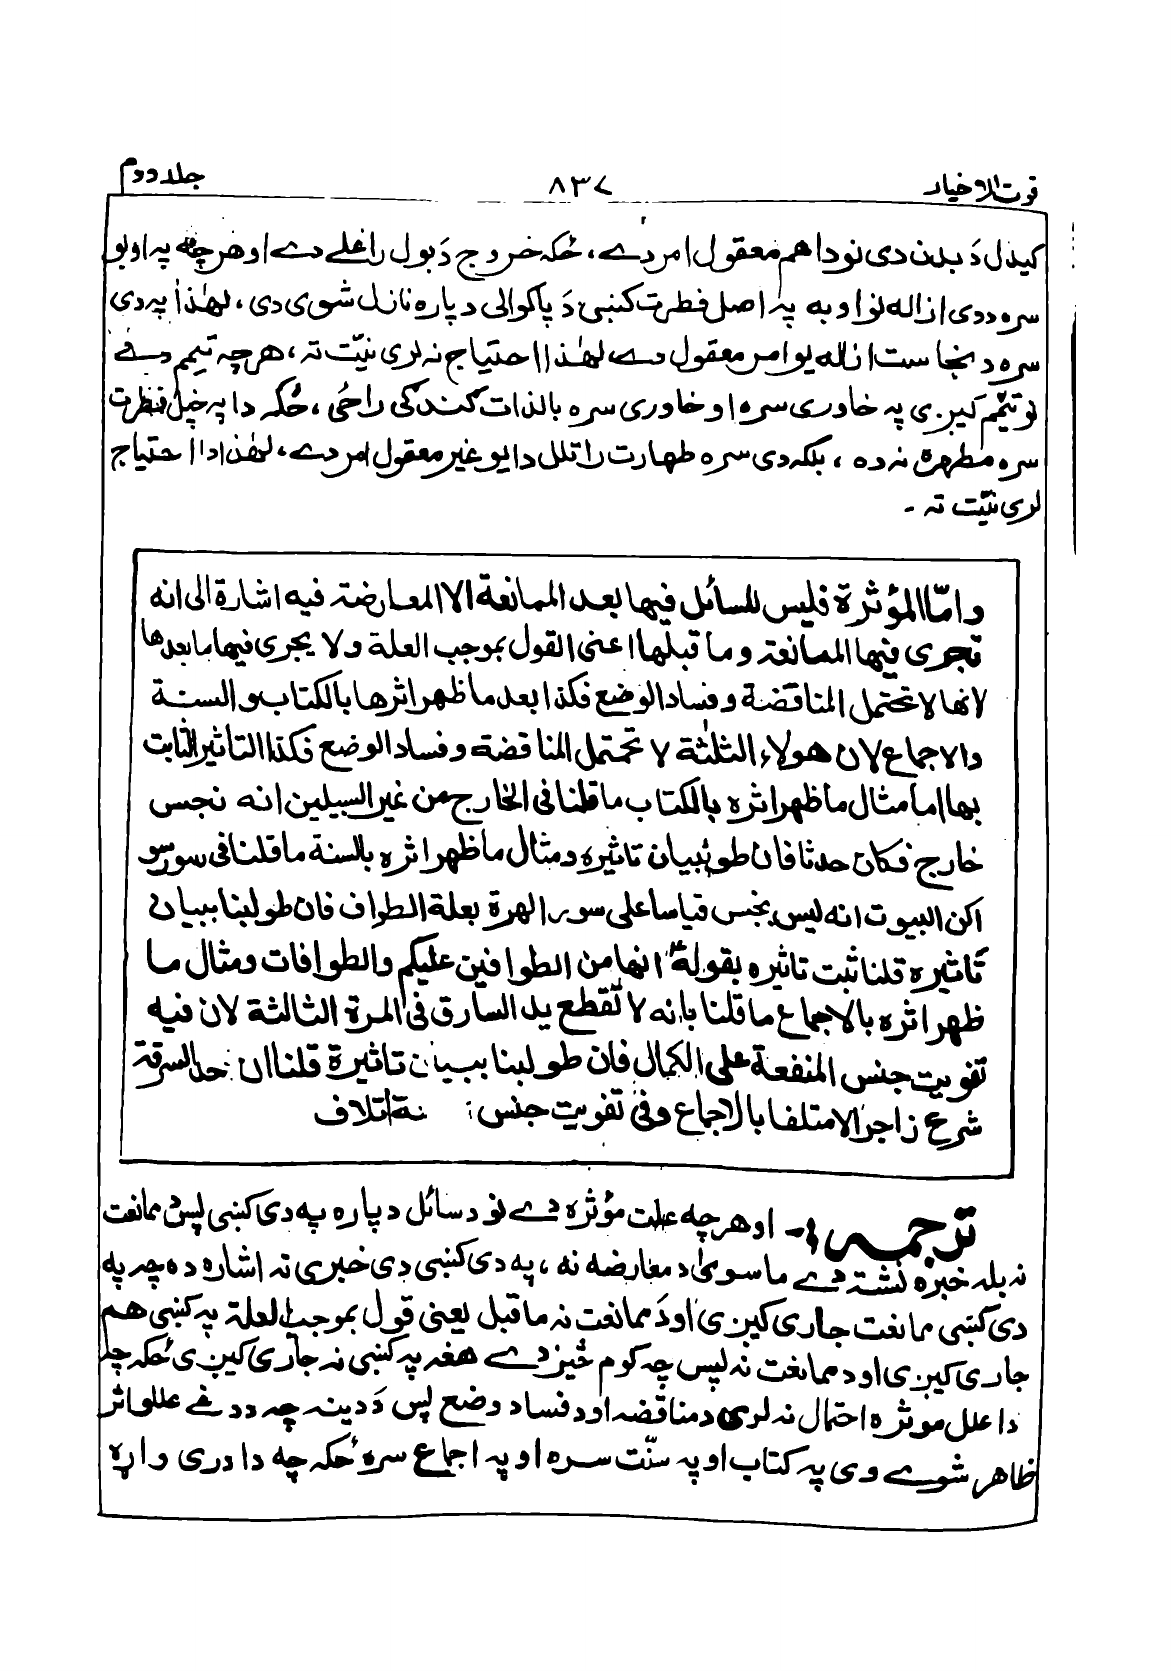 قوت الاخیار
۸۳۷
جلد دوم
کیدل دَ بدن دی نو دا هم معقول امر دے، ځکه خروج دَ بول راغلے دے او هر چه په اوبو
سره ددی ازاله نو اوبه په اصل فطرت کښی دَ پاکوالی دپاره نازل شوی دی، لهٰذا په دی
سره د نجاست ازاله یو امر معقول دے، لهٰذا احتیاج نه لری نیّت ته، هر چه تیمم دے
نو تیمّم کیږی په خاوری سره او خاوری سره بالذات ګندګی راځی، ځکه دا په خپل فطرت
سره مطهره نه ده، بلکه دی سره طهارت راتلل دا یو غیر معقول امر دے، لهٰذا دا احتیاج
لری نیّت ته ۔
وامّا المؤثرة فليس للسائل فيها بعد الممانعة الا المعارضة فيه اشارة الى انه
تجرى فيها الممانعة وما قبلها اعنى القول بموجب العلة ولا يجرى فيها ما بعدها
لانها لا تحتمل المناقضة وفساد الوضع فكذا بعد ما ظهر اثرها بالكتاب والسنة
والاجماع لان هولاء الثلثة لا تحتمل المناقضة وفساد الوضع فكذا التاثير الثابت
بها اما مثال ما ظهر اثره بالكتاب ما قلنا فى الخارج من غير السبيلين انه نجس
خارج فكان حدثا فان طولب ببيان تاثيره ومثال ما ظهر اثره بالسنة ما قلنا فى سور سو
اكن البيوت انه ليس بنجس قياسا على سور الهرة بعلة الطواف فان طولبنا ببيان
تاثيره قلنا ثبت تاثيره بقوله ؑ انها من الطوافين عليكم والطوافات ومثال ما
ظهر اثره بالاجماع ما قلنا بانه لا تقطع يد السارق فى المرة الثالثة لان فيه
تفويت جنس المنفعة على الكمال فان طولبنا ببيان تاثيرة قلنا ان حد السرقة
شرع زاجرا لا متلفا بالاجماع وفى تفويت جنس اتلاف
ترجمه :- او هر چه علت مؤثره دے نو د سائل دپاره په دی کښی پس د ممانعت
نه بله خبره نشته دے ماسویٰ د معارضه نه، په دی کښی دی خبری ته اشاره ده چه په
دی کښی ممانعت جاری کیږی او دَ ممانعت نه ما قبل یعنی قول بموجب العلة په کښی هم
جاری کیږی او د ممانعت نه پس چه کوم څیز دے هغه په کښی نه جاری کیږی ځکه چه
دا علل موثره احتمال نه لری د مناقضه او د فساد وضع پس دَ دینه چه ددغے عللو اثر
ظاهر شوے وی په کتاب او په سنّت سره او په اجماع سره ځکه چه دا دری واړه